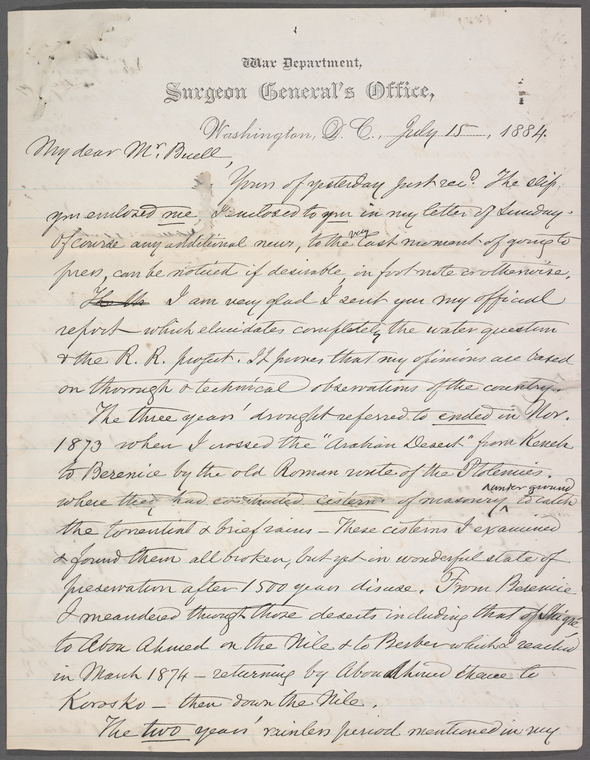 War Department,
Surgeon General's Office,
Washington, D.C., July 15, 1884.
My dear Mr. Buell,
Yours of yesterday just recd. The slip
you enclosed me, I enclosed to you in my letter of Sunday.
Of course any additional news, to the very last moment of going to
press, can be noticed if desirable in foot note or otherwise.
I am very glad I sent you my official
report—which elucidates completely the water question
& the R. R. project. It proves that my opinions are based
on thorough & technical observations of the country.
The three years' drought referred to ended in Nov.
1873 when I crossed the "Arabian Desert" from Keneh
to Berenice by the old Roman route of the Ptolemies.
where they had constructed cisterns of masonry under ground to catch
the torrential & brief rains – These cisterns I examined
& found them all broken, but yet in wonderful state of
preservation after 1500 years disuse. From Berenice
I meandered through those deserts including that of
to Abou Ahmed on the Nile & to Berber which I reached
in March 1874 – returning by Abou Ahmed thence to
Korosko – then down the Nile.
The two years' rainless period mentioned in my